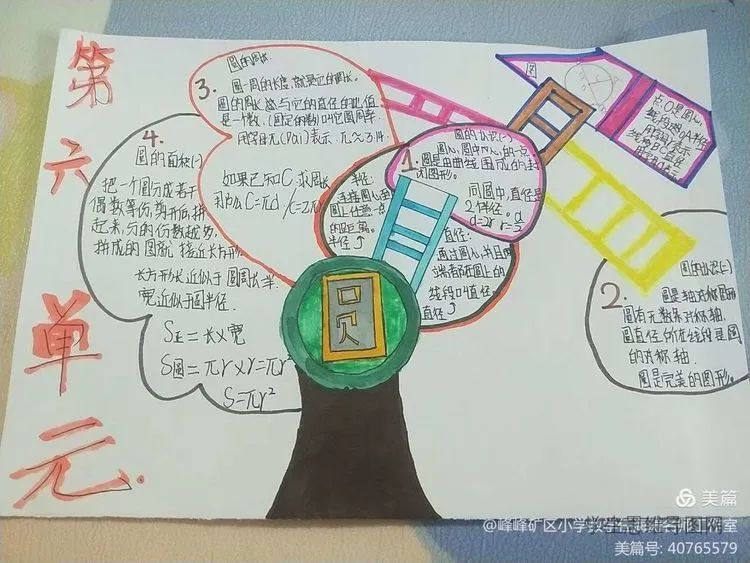 第六单元.
3.
圆的周长
圆一周的长度,就是它的周长。
圆的周长总与它的直径的比值
是一个数.(固定的数)叫它圆周率.
用字母π(Pai)表示.π≈3.14
如果已知C.求周长
C=πd
4.
圆的面积(一)
把一个圆分成若干
偶数等份,剪开后,拼
起来,分的份数越多,
拼成的图就接近长方形.
长方形长近似于圆周长一半.
宽近似于圆半径.
S=长×宽
S圆=πr×r=πr²
S=πr²
1.
圆的认识(一)
圆心:圆中心的一点
圆是由曲线围成的封
闭图形。
同圆中,直径是
2个半径。d
d=2r r=d/2
半径:
连接圆心至
圆上任意一点
的距离。
半径
直径:
通过圆心,并且两
端都在圆上的
线段叫直径。
直径
圆
圆
点O是圆心
2.
圆的认识(二)
圆是轴对称图形
圆有无数条对称轴.
圆直径所在线段是圆
的对称轴.
圆是完美的图形。
美篇
美篇号: 40765579